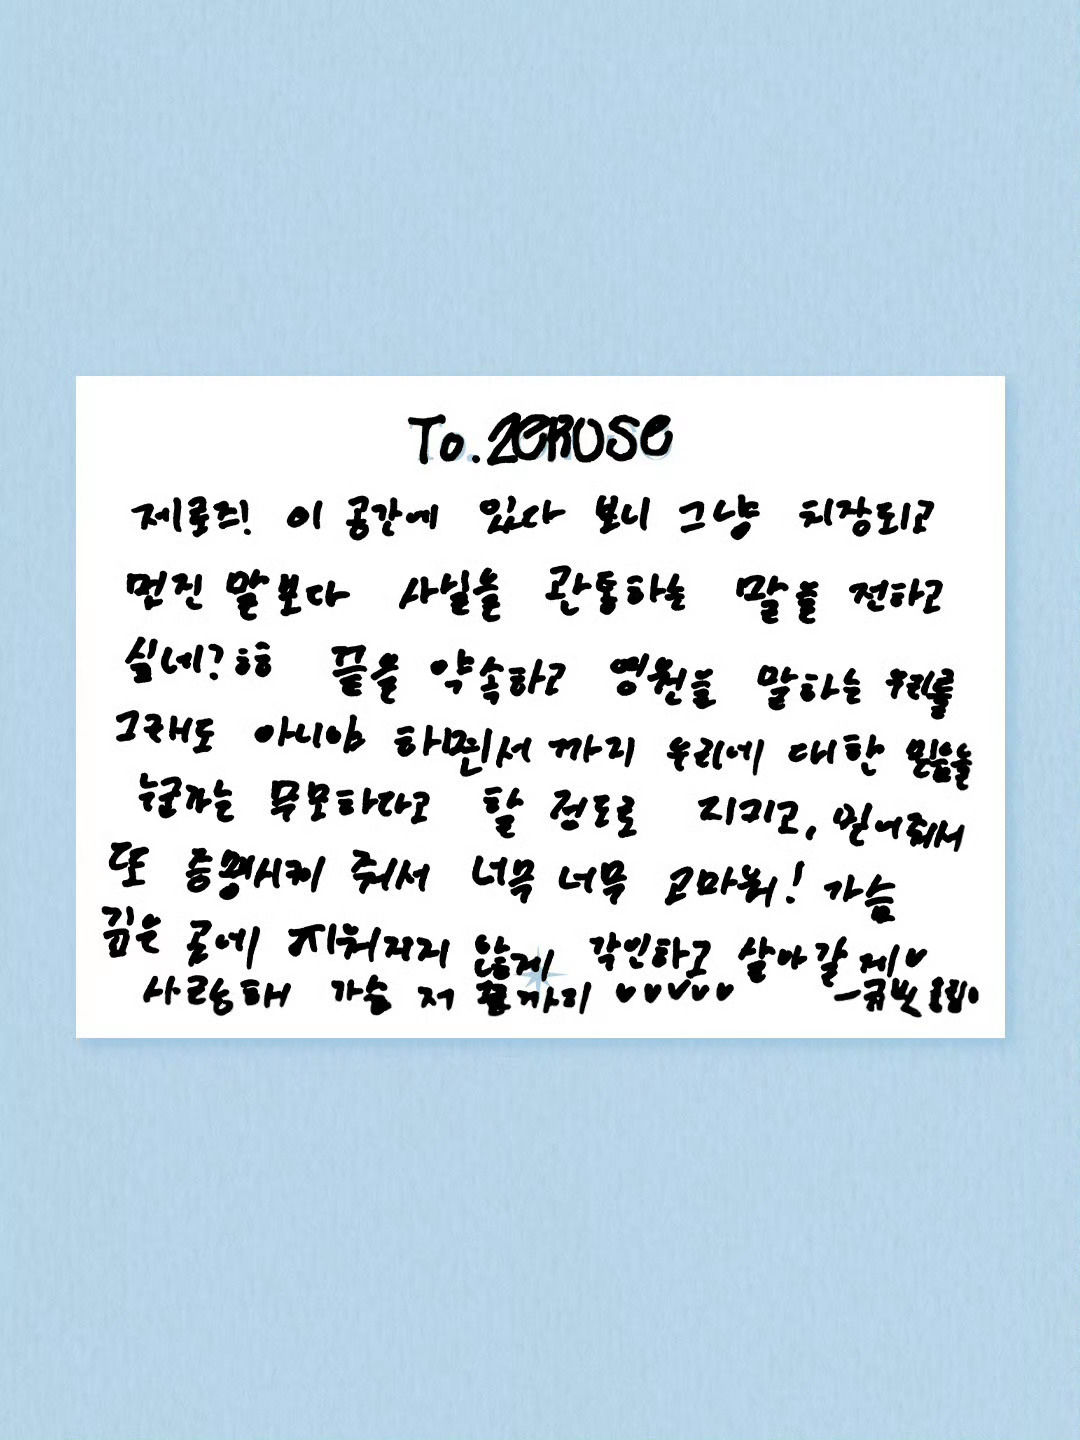 To. ZEROSE
제로즈! 이 공간에 있다 보니 그냥 치장되고
멋진 말보다 사실을 관통하는 말을 전하고
싶네? ㅎㅎ 끝을 약속하고 영원을 말하는 우리를
그래도 아니야 하면서까지 우리에 대한 믿음을
누군가는 무모하다고 할 정도로 지키고, 믿어줘서
또 증명시켜 줘서 너무 너무 고마워! 가슴
깊은 곳에 지워지지 않게 각인하고 살아갈게♥
사랑해 가슴 저 끝까지 ♥♥♥♥♥